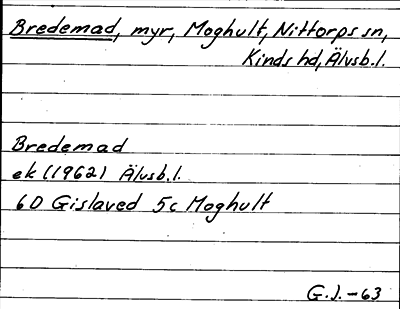 Bredemad, myr, Moghult, Nittorps sn,
Kinds hd, Älvsb.l.
Bredemad
ek (1962) Älvsb.l.
6D Gislaved 5c Moghult
G.J. -63